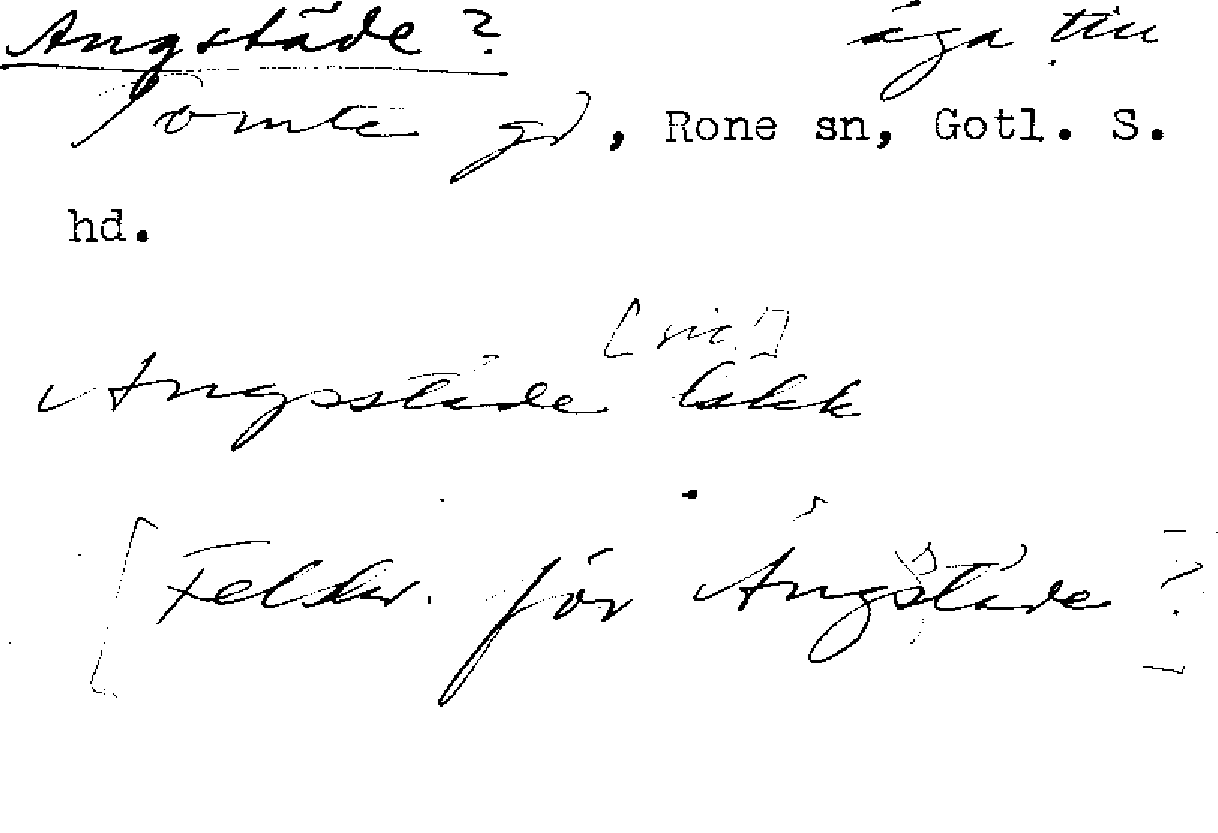 Angstäde ?
Tomte gd, Rone sn, Gotl. S.
hd.
[sic!]
Angsstäde
[Felskr. för Ängstäde ?]